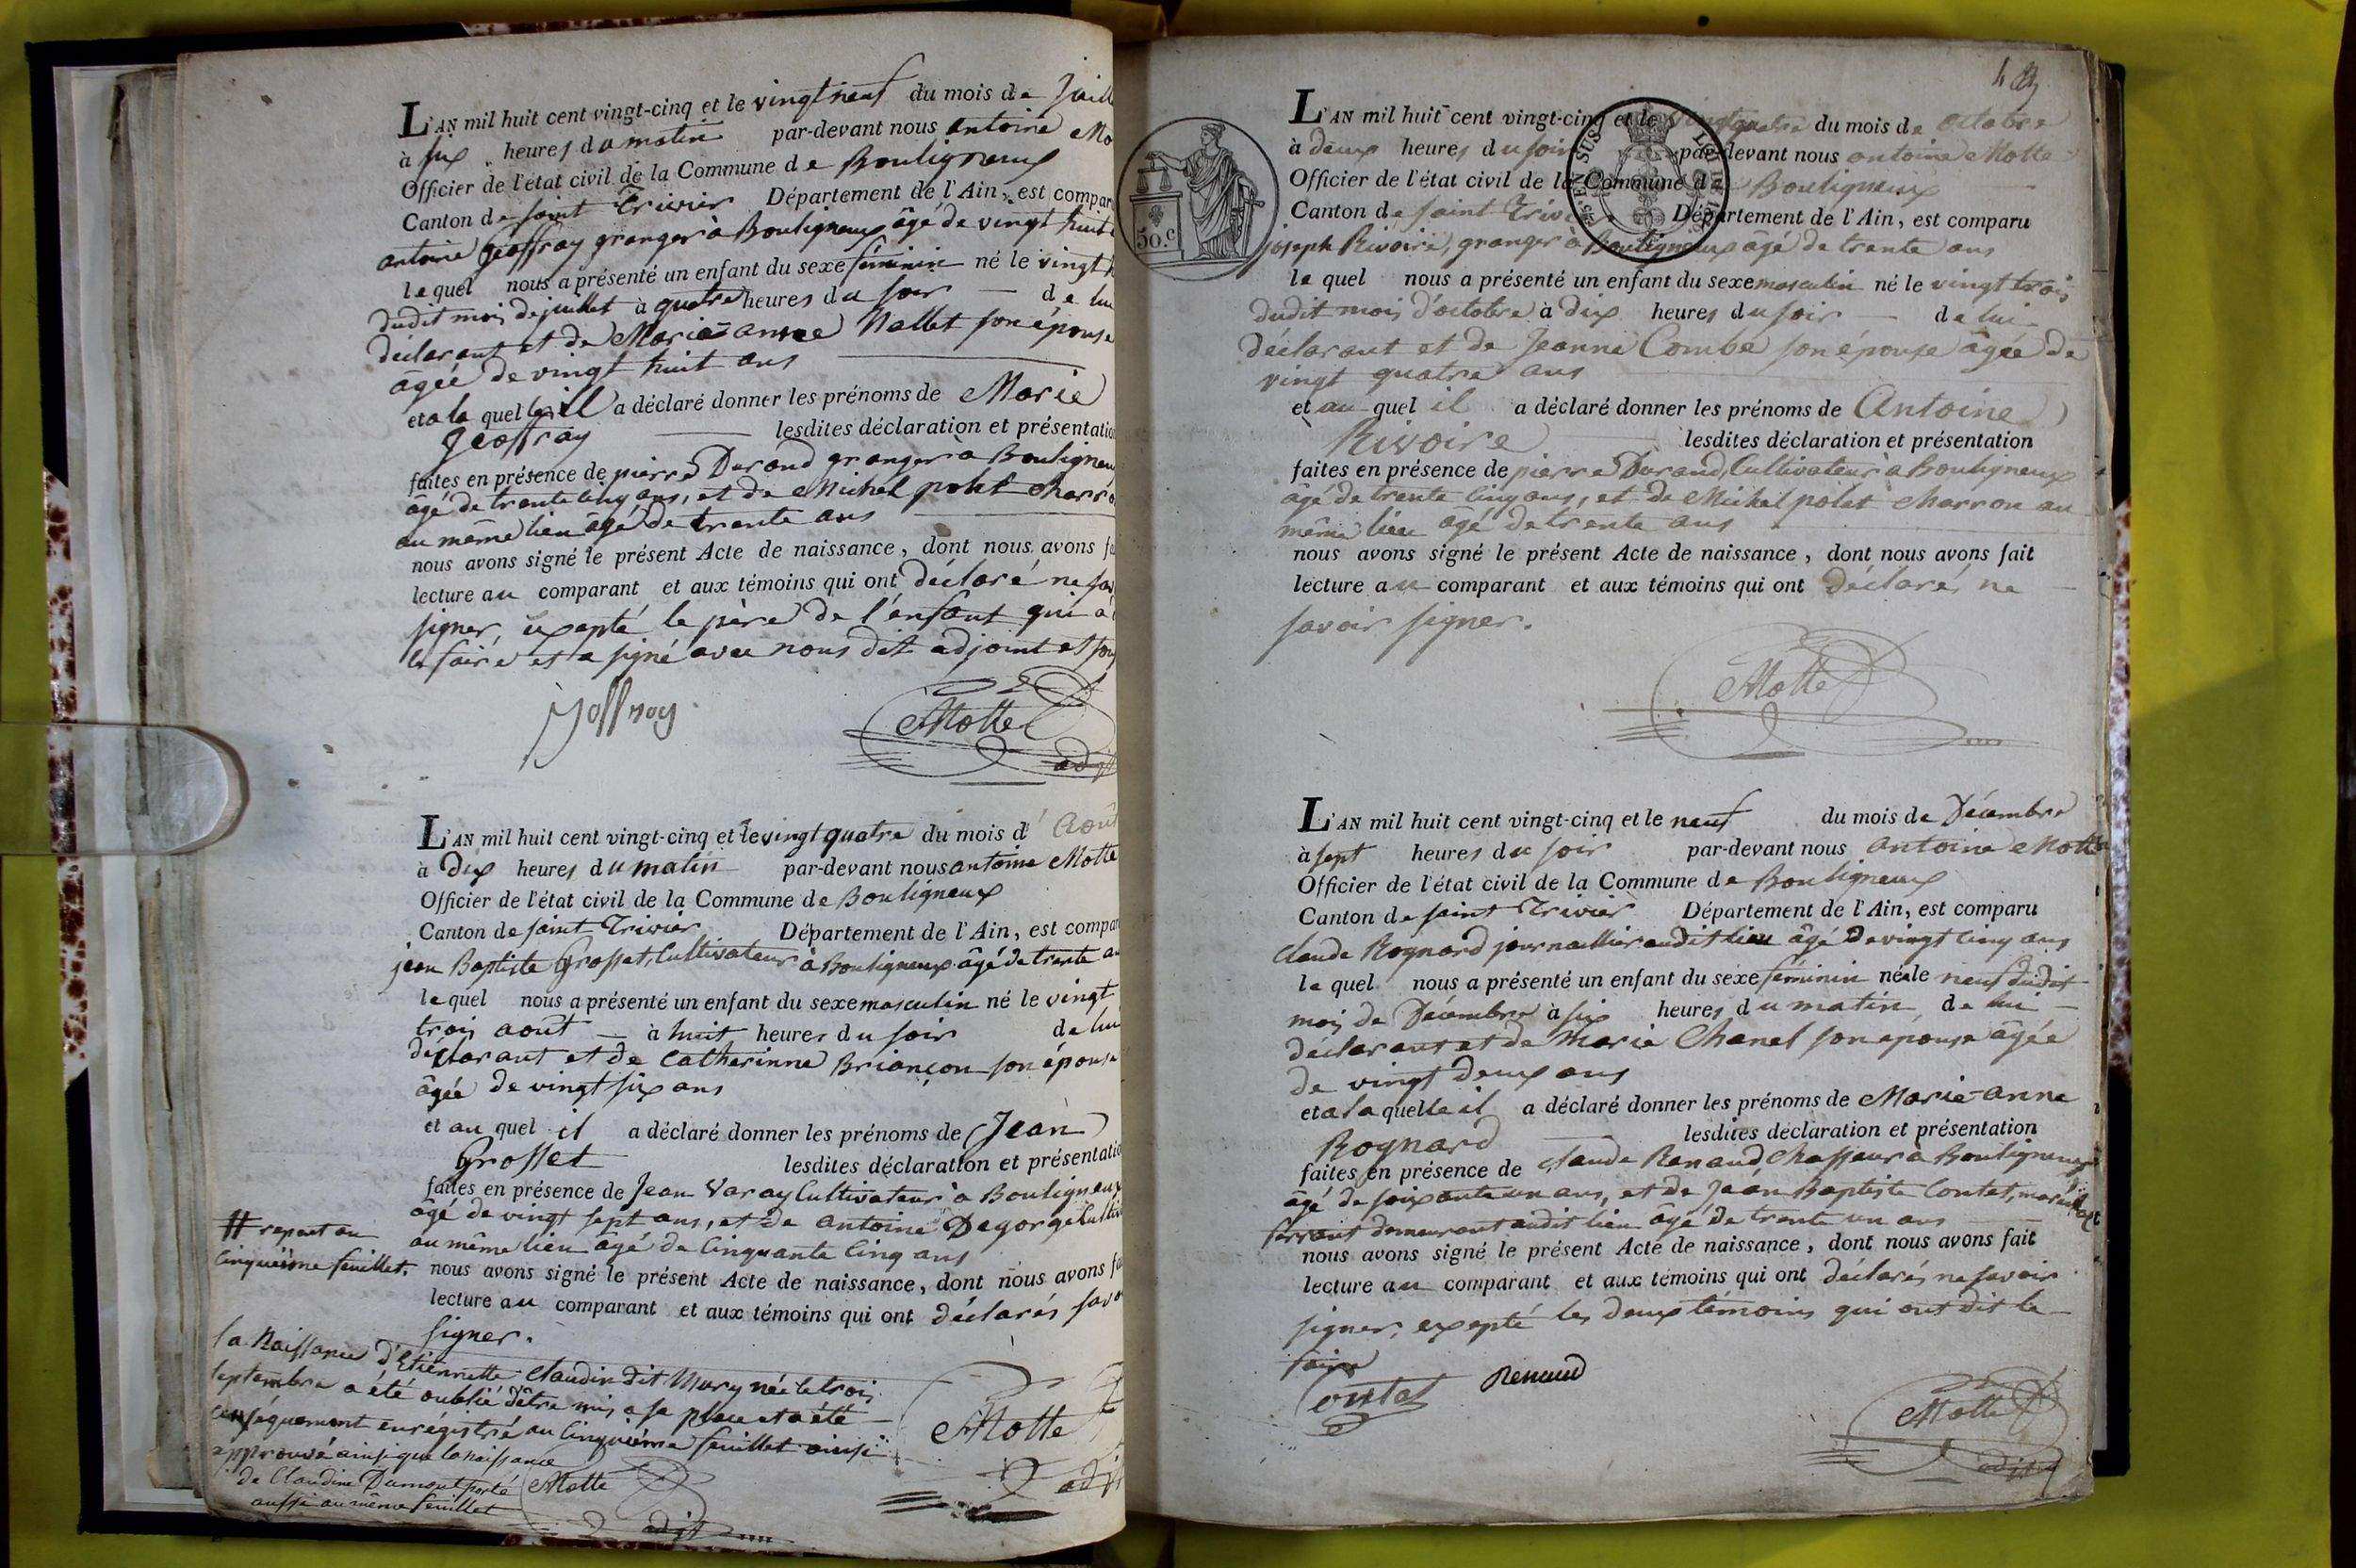 L'AN mil huit cent vingt-cinq et le vingt neuf du mois de Juill
à six heures du matin par-devant nous antoine Mo
Officier de l'état civil de la Commune de Bouligneux
Canton de saint Trivier Département de l'Ain, est compar
antoine Geoffray granger à Bouligneux âgé de vingt huit
le quel nous a présenté un enfant du sexe féminin né le vingt
dudit mois de juillet à quatre heures du soir — de lui
déclarant et de Marie-anne Nallet son épouse
âgée de vingt huit ans
et a la quelle il a déclaré donner les prénoms de Marie
Geoffray lesdites déclaration et présentation
faites en présence de pierre Durand granger à Bouligneux
âgé de trente cinq ans, et de Michel polet charro
au même lieu âgé de trente ans
nous avons signé le présent Acte de naissance, dont nous avons fa
lecture au comparant et aux témoins qui ont déclaré ne sav
signer, exepté le père de l'enfant qui a
le faire et a signé avec nous dit adjoint et
joffray
Motte
adjt
L'AN mil huit cent vingt-cinq et le vingt quatre du mois d' Août
à dix heures du matin par-devant nous antoine Motte
Officier de l'état civil de la Commune de Bouligneux
Canton de saint Trivier Département de l'Ain, est compar
jean Baptiste Grosset, Cultivateur à Bouligneux âgé de trente an
le quel nous a présenté un enfant du sexe masculin né le vingt
trois août — à huit heures du soir de lui
déclarant et de Catherinne Briançon son épouse
âgée de vingt six ans
et au quel il a déclaré donner les prénoms de Jean
Grosset lesdites déclaration et présentatio
faites en présence de Jean Varay Cultivateur à Bouligneux
âgé de vingt sept ans, et de antoine Degorge Cultiv
au même lieu âgé de Cinquante Cinq ans
nous avons signé le présent Acte de naissance, dont nous avons fa
lecture au comparant et aux témoins qui ont déclarés savo
signer.
# report au
Cinquième feuillet.
la Naissance d'Etiennette Claudin dit Mury née le trois
septembre a été oublié d'être mis a sa place et a été
conséquemment enregistré au Cinquième feuillet ainsi
approuvé ainsi que la naissance
de Claudine Dumont porté
aussi au même feuillet
Motte
adjt
Motte
adjt
4
L'AN mil huit cent vingt-cinq et le vingt quatre du mois de octobre
à deux heures du soir par-devant nous antoine Motte
Officier de l'état civil de la Commune de Bouligneux
Canton de saint Trivier Département de l'Ain, est comparu
joseph Rivoire, granger à Bouligneux âgé de trente ans
le quel nous a présenté un enfant du sexe masculin né le vingt trois
dudit mois d'octobre à dix heures du soir — de lui
déclarant et de Jeanne Combe son épouse âgée de
vingt quatre ans
et au quel il a déclaré donner les prénoms de Antoine
Rivoire lesdites déclaration et présentation
faites en présence de pierre Durand, Cultivateur à Bouligneux
âgé de trente Cinq ans, et de Michel polet charron au
même lieu âgé de trente ans
nous avons signé le présent Acte de naissance, dont nous avons fait
lecture au comparant et aux témoins qui ont déclarés ne
savoir signer.
Motte
50.c
L'AN mil huit cent vingt-cinq et le neuf du mois de Décembre
à sept heures du soir par-devant nous antoine Motte
Officier de l'état civil de la Commune de Bouligneux
Canton de saint Trivier Département de l'Ain, est comparu
Claude Rognard journallier audit lieu âgé de vingt Cinq ans
le quel nous a présenté un enfant du sexe féminin née le neuf dudit
mois de Décembre à six heures du matin de lui —
déclarant et de Marie Chanel son épouse âgée
de vingt deux ans
et a la quelle il a déclaré donner les prénoms de Marie-anne
Rognard lesdites déclaration et présentation
faites en présence de Claude Renaud Chasseur à Bouligneux
âgé de soixante un ans, et de Jean Baptiste Contet, maréchal
ferrant demeurant audit lieu âgé de trente un ans
nous avons signé le présent Acte de naissance, dont nous avons fait
lecture au comparant et aux témoins qui ont déclarés ne savoir
signer, exepté les deux témoins qui ont dit le
faire
Contet Renaud
Motte
adjt